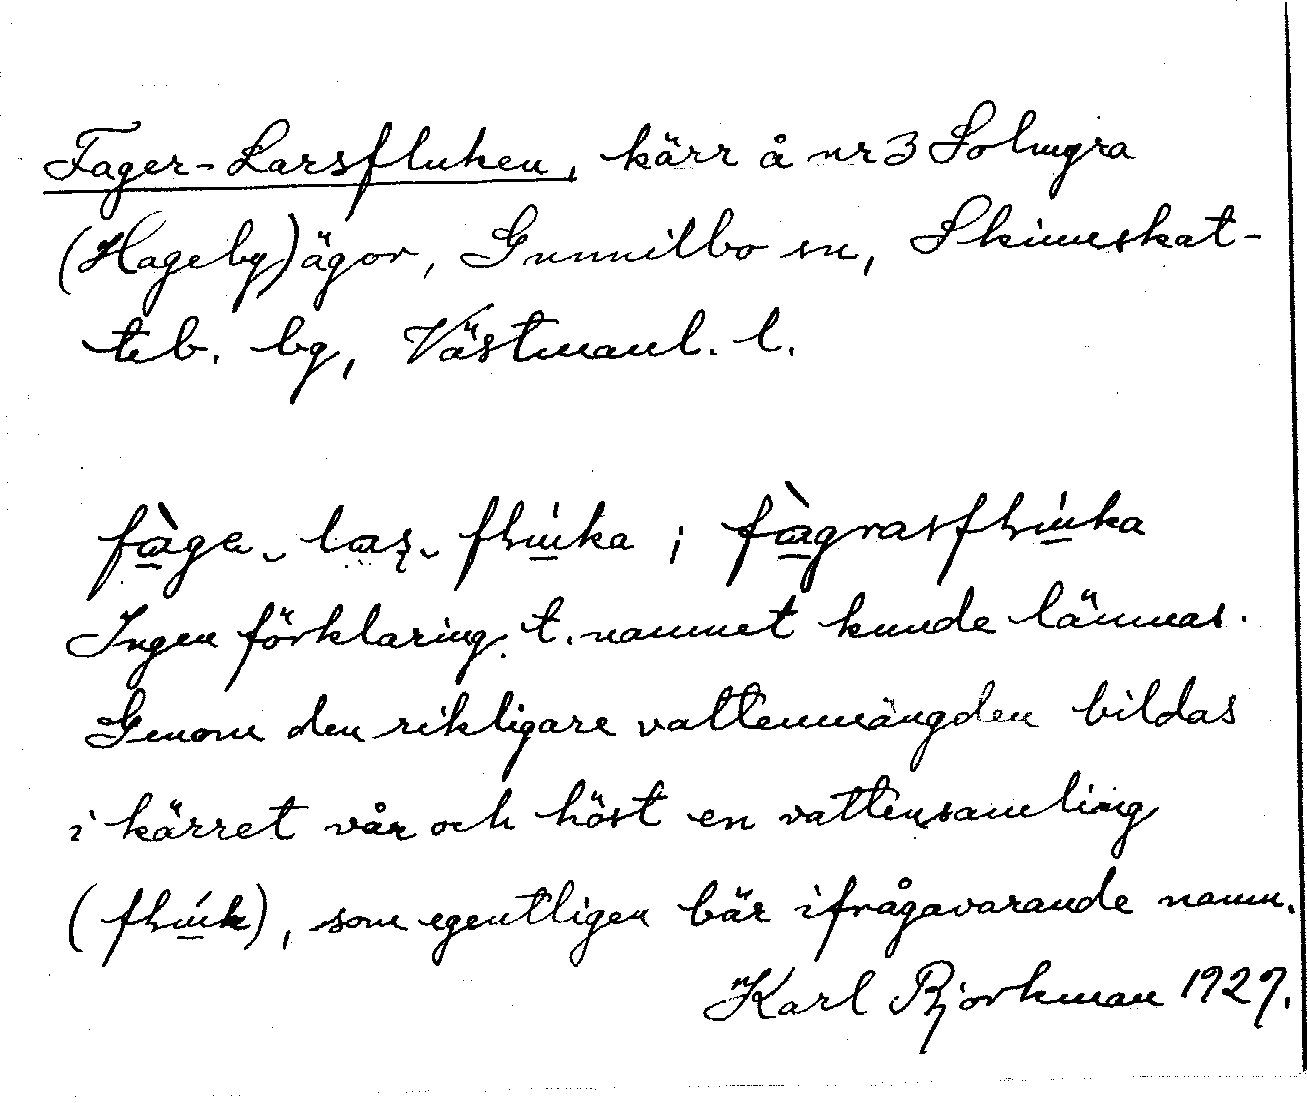 Fager-Larsfluken, kärr å nr 3 Solmyra
(Hageby) ägor, Gunnilbo sn, Skinnskat-
teb. bg, Västmanl. l.
fàge - las - flúka ; fàgrasflúka
Ingen förklaring t. namnet kunde lämnas.
Genom den rikligare vattenmängden bildas
i kärret vår och höst en vattensamling
(flúk), som egentligen bär ifrågavarande namn.
Karl Björkman 1927.